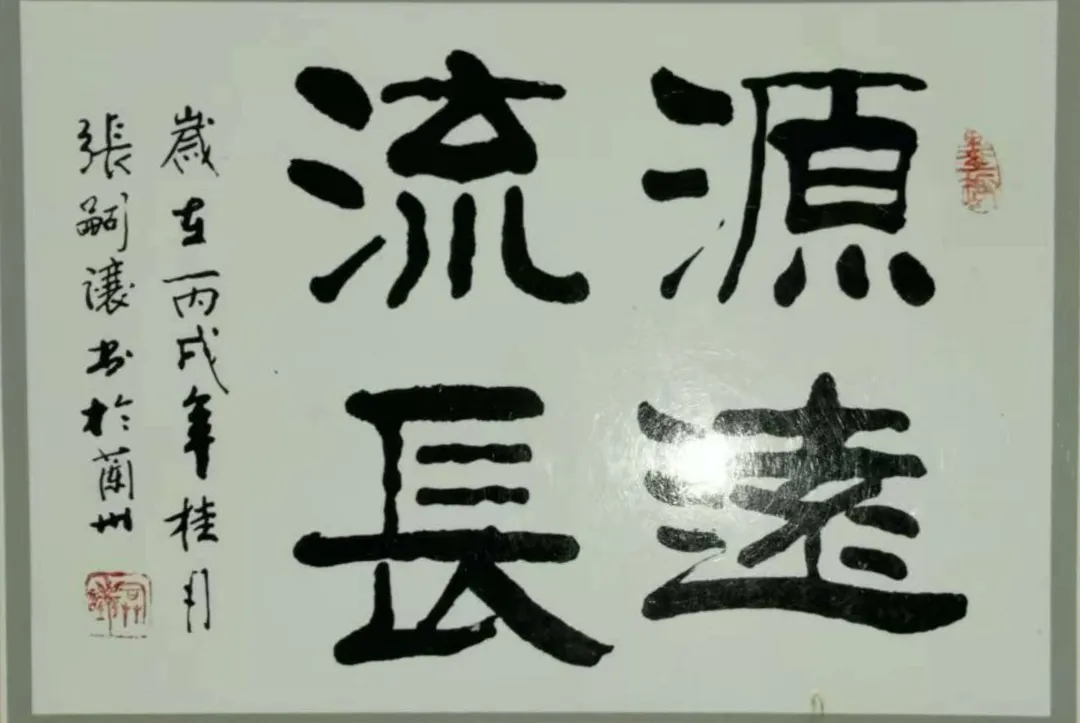 源遠
流長
歲在丙戌年桂月
張嗣讓書於蘭州